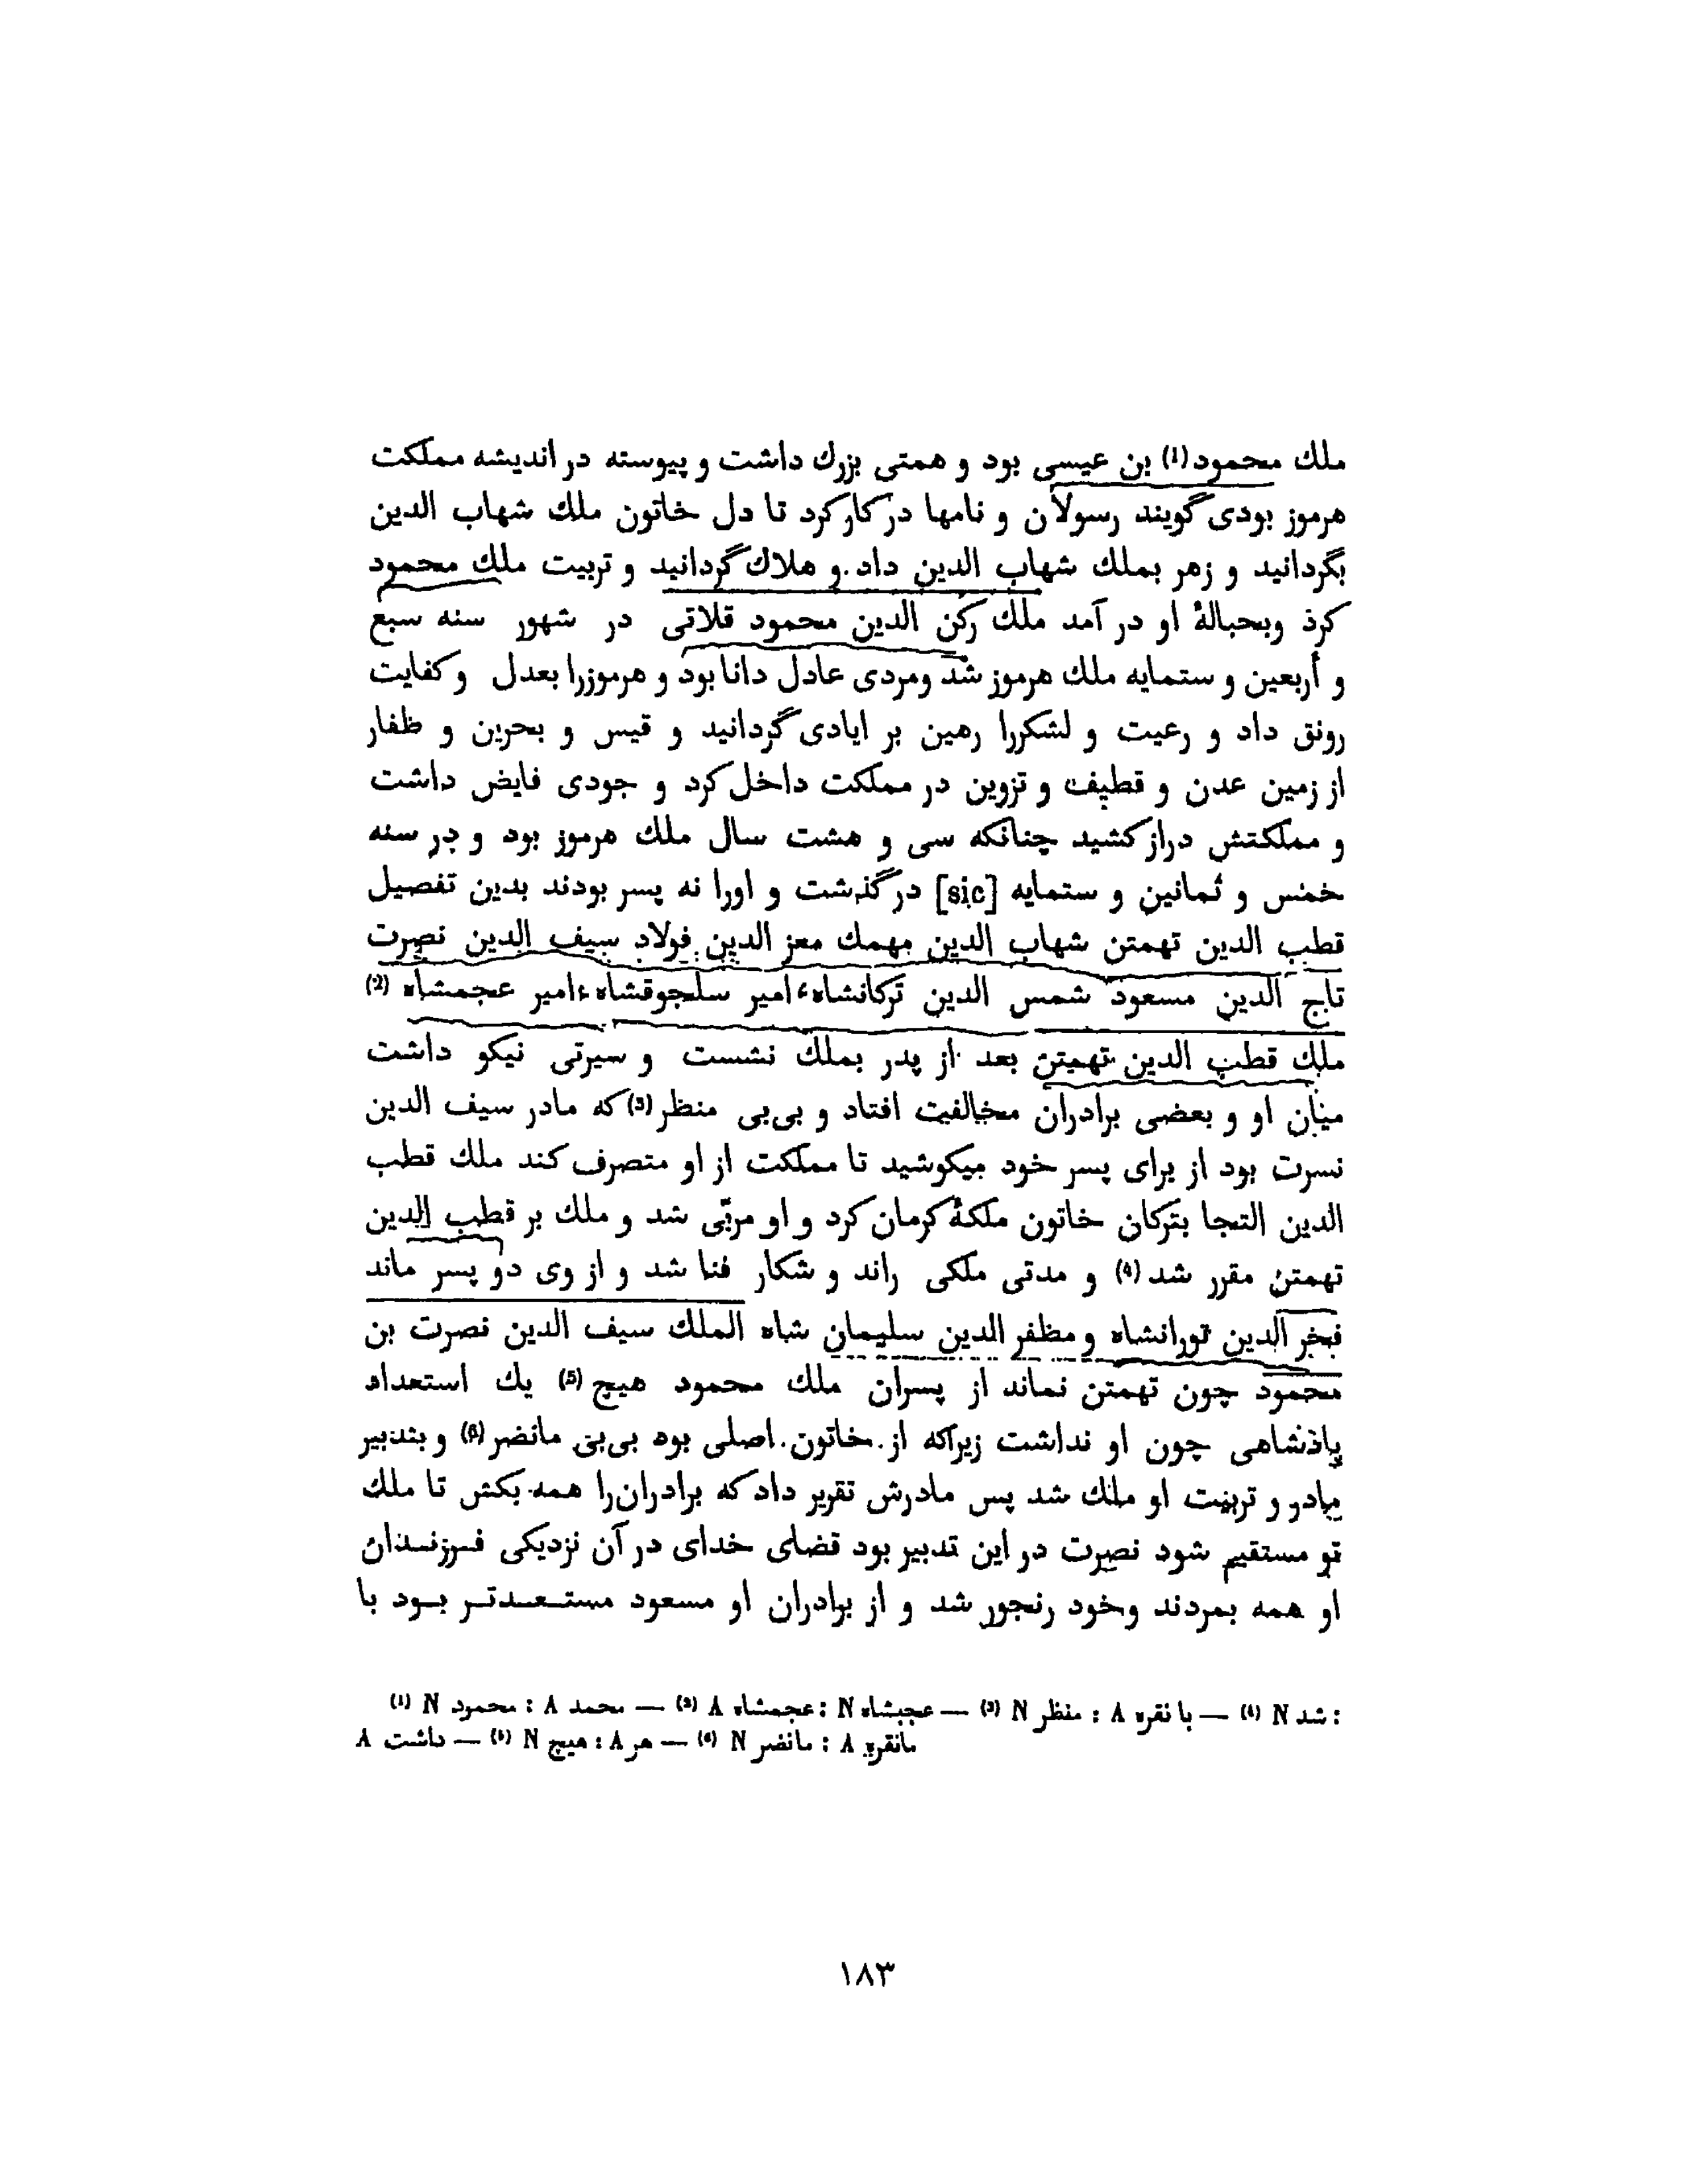 ملك محمود(1) بن عیسی بود و همتی بزرك داشت و پیوسته در اندیشه مملکت
هرموز بودی گویند رسولان و نامها در کار کرد تا دل خاتون ملك شهاب الدین
بگردانید و زهر بملك شهاب الدین داد و هلاك گردانید و تربیت ملك محمود
کرذ وبحبالهٔ او در آمد ملك رکن الدین محمود قلاتی در شهور سنه سبع
و أربعین و ستمایه ملك هرموز شد ومردی عادل دانا بود و هرموزرا بعدل و کفایت
رونق داد و رعیت و لشکررا رهین بر ایادی گردانید و قیس و بحرین و ظفار
از زمین عدن و قطیف و تزوین در مملکت داخل کرد و جودی فایض داشت
و مملکتش دراز کشید چنانکه سی و هشت سال ملك هرموز بود و در سنه
خمس و ثمانین و ستمایه [sic] درگذشت و اورا نه پسر بودند بدین تفصیل
قطب الدین تهمتن شهاب الدین مهمك معز الدین فولاد سیف الدین نصرت
تاج الدین مسعود شمس الدین ترکانشاه، امیر سلجوقشاه، امیر عجمشاه (2)
ملك قطب الدین تهمتن بعد از پدر بملك نشست و سیرتی نیکو داشت
میان او و بعضی برادران مخالفت افتاد و بی‌بی منظر(3) که مادر سیف الدین
نسرت بود از برای پسر خود میکوشید تا مملکت از او متصرف کند ملك قطب
الدین التجا بترکان خاتون ملکهٔ کرمان کرد و او مربّی شد و ملك بر قطب الدین
تهمتن مقرر شد (4) و مدتی ملکی راند و شکار فنا شد و از وی دو پسر ماند
فخر الدین تورانشاه و مظفر الدین سلیمان شاه الملك سیف الدین نصرت بن
محمود چون تهمتن نماند از پسران ملك محمود هیچ (5) یك استعداد
پاذشاهی چون او نداشت زیراکه از خاتون اصلی بود بی‌بی مانضر(6) و بتدبیر
مادر و تربیت او ملك شد پس مادرش تقریر داد که برادران را همه بکش تا ملك
تو مستقیم شود نصرت در این تدبیر بود قضای خدای در آن نزدیکی فرزندان
او همه بمردند وخود رنجور شد و از برادران او مسعود مستعدتر بود با
(1) N محمود : A محمد — (2) A عجمشاه : N عجبشاه — (3) N منظر : A با نقره — (4) N شد :
A داشت — (5) N هیچ : A هر — (6) N مانضر : A مانقره
۱۸۳